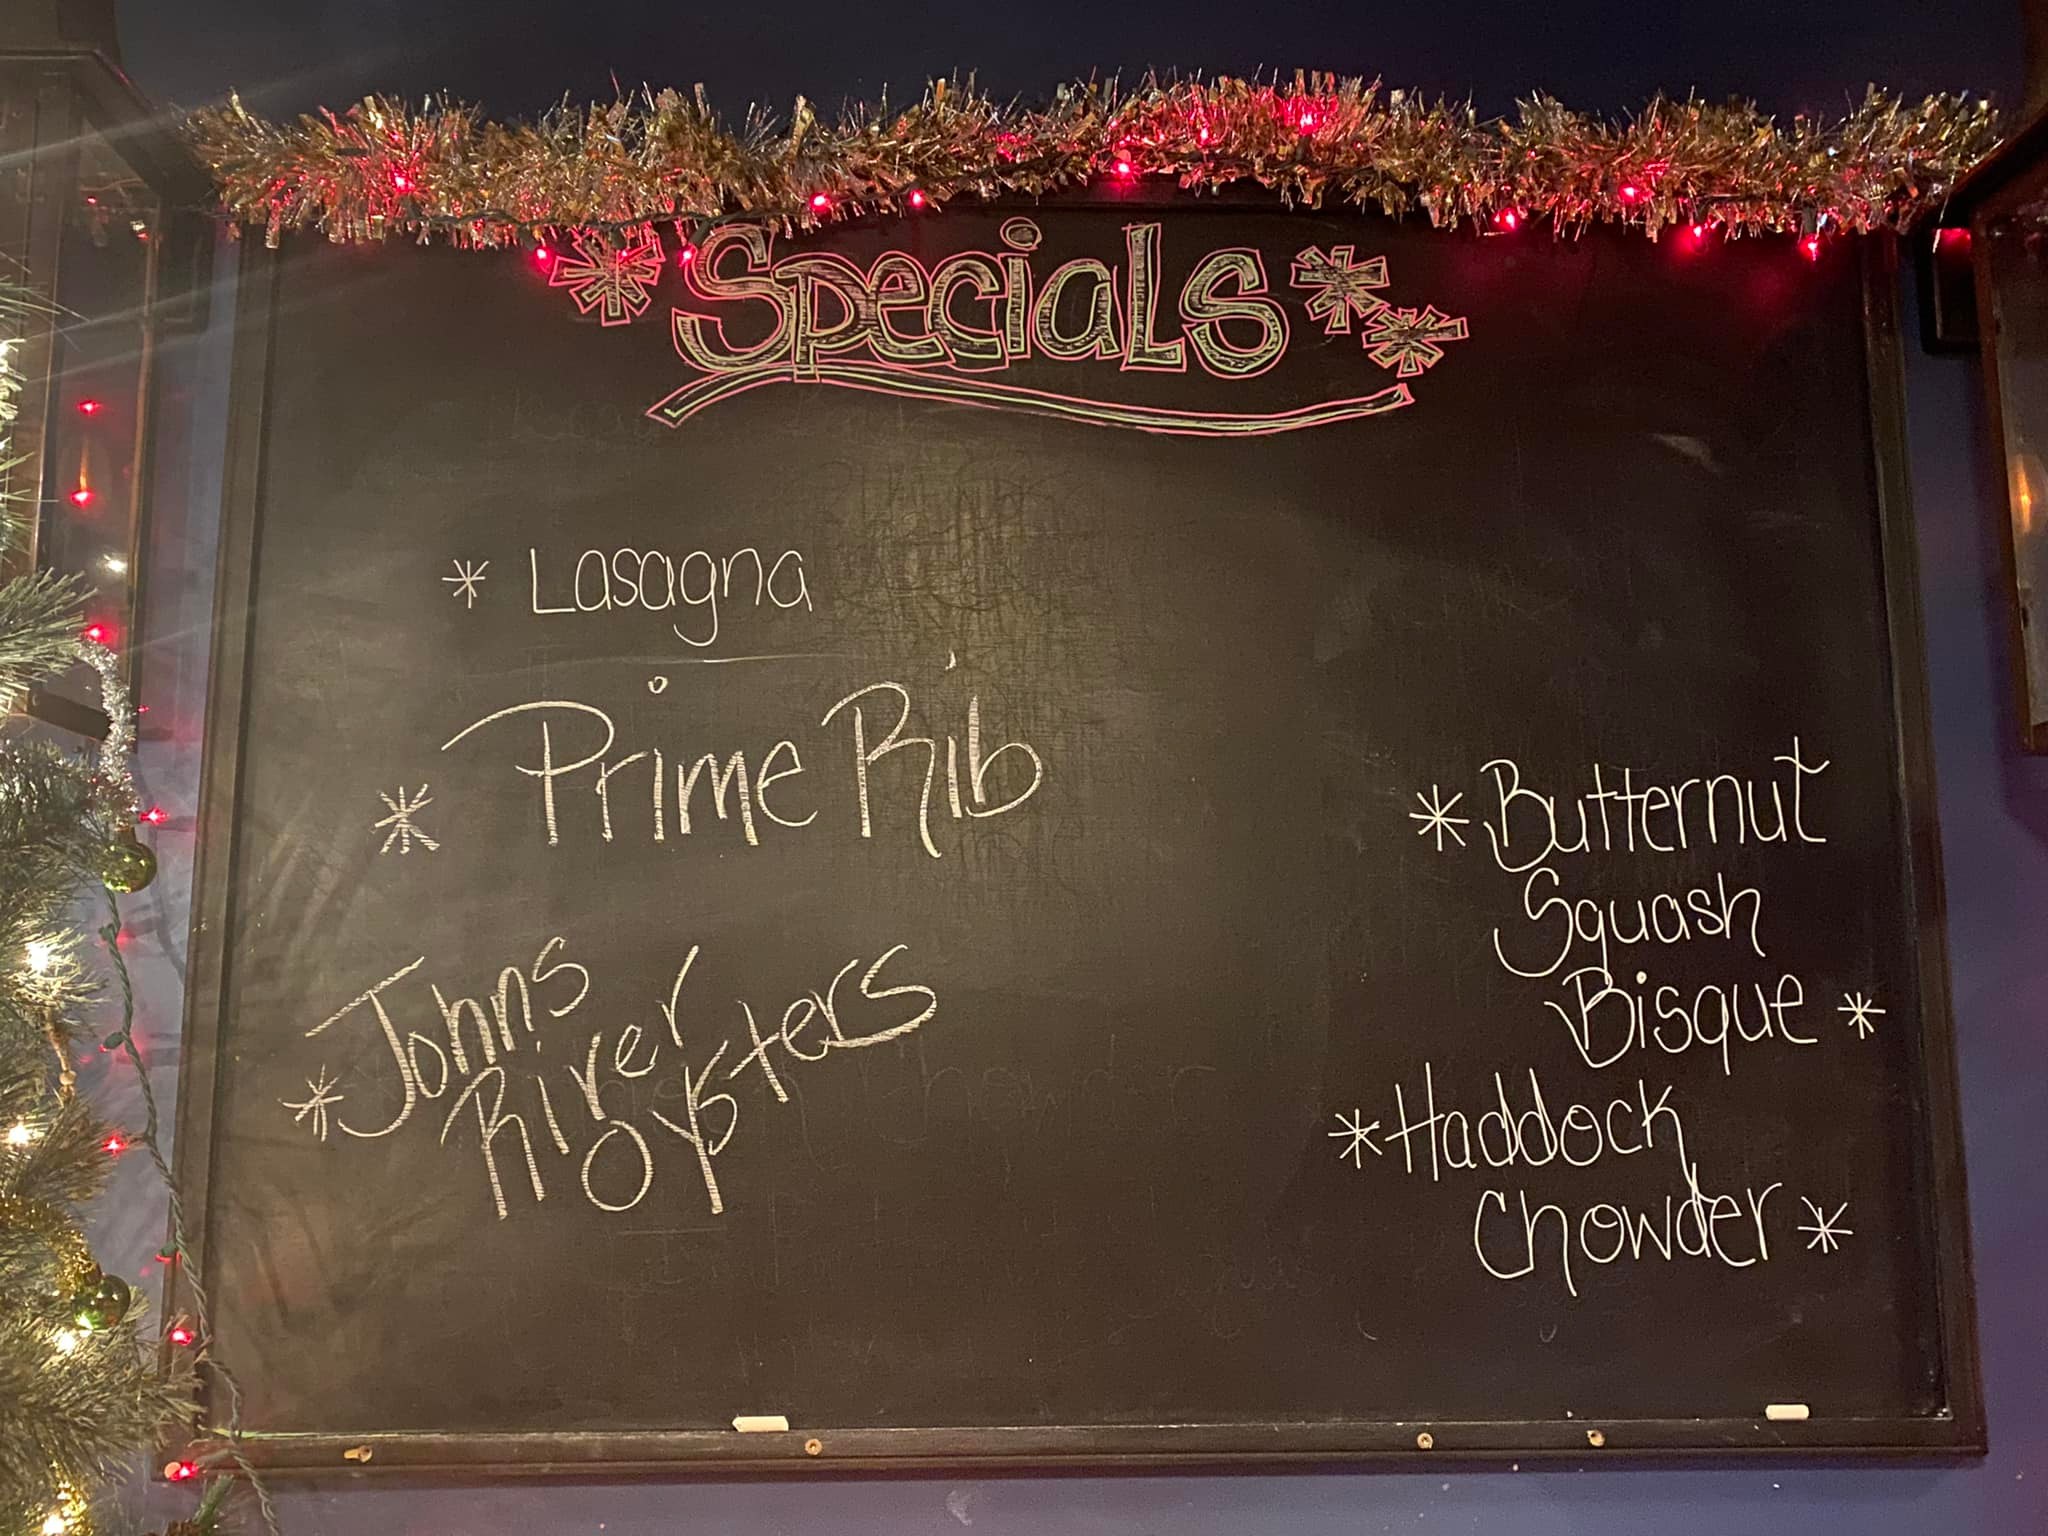 * Specials **
* Lasagna
* Prime Rib
* Johns
River
Oysters
* Butternut
Squash
Bisque *
* Haddock
Chowder *